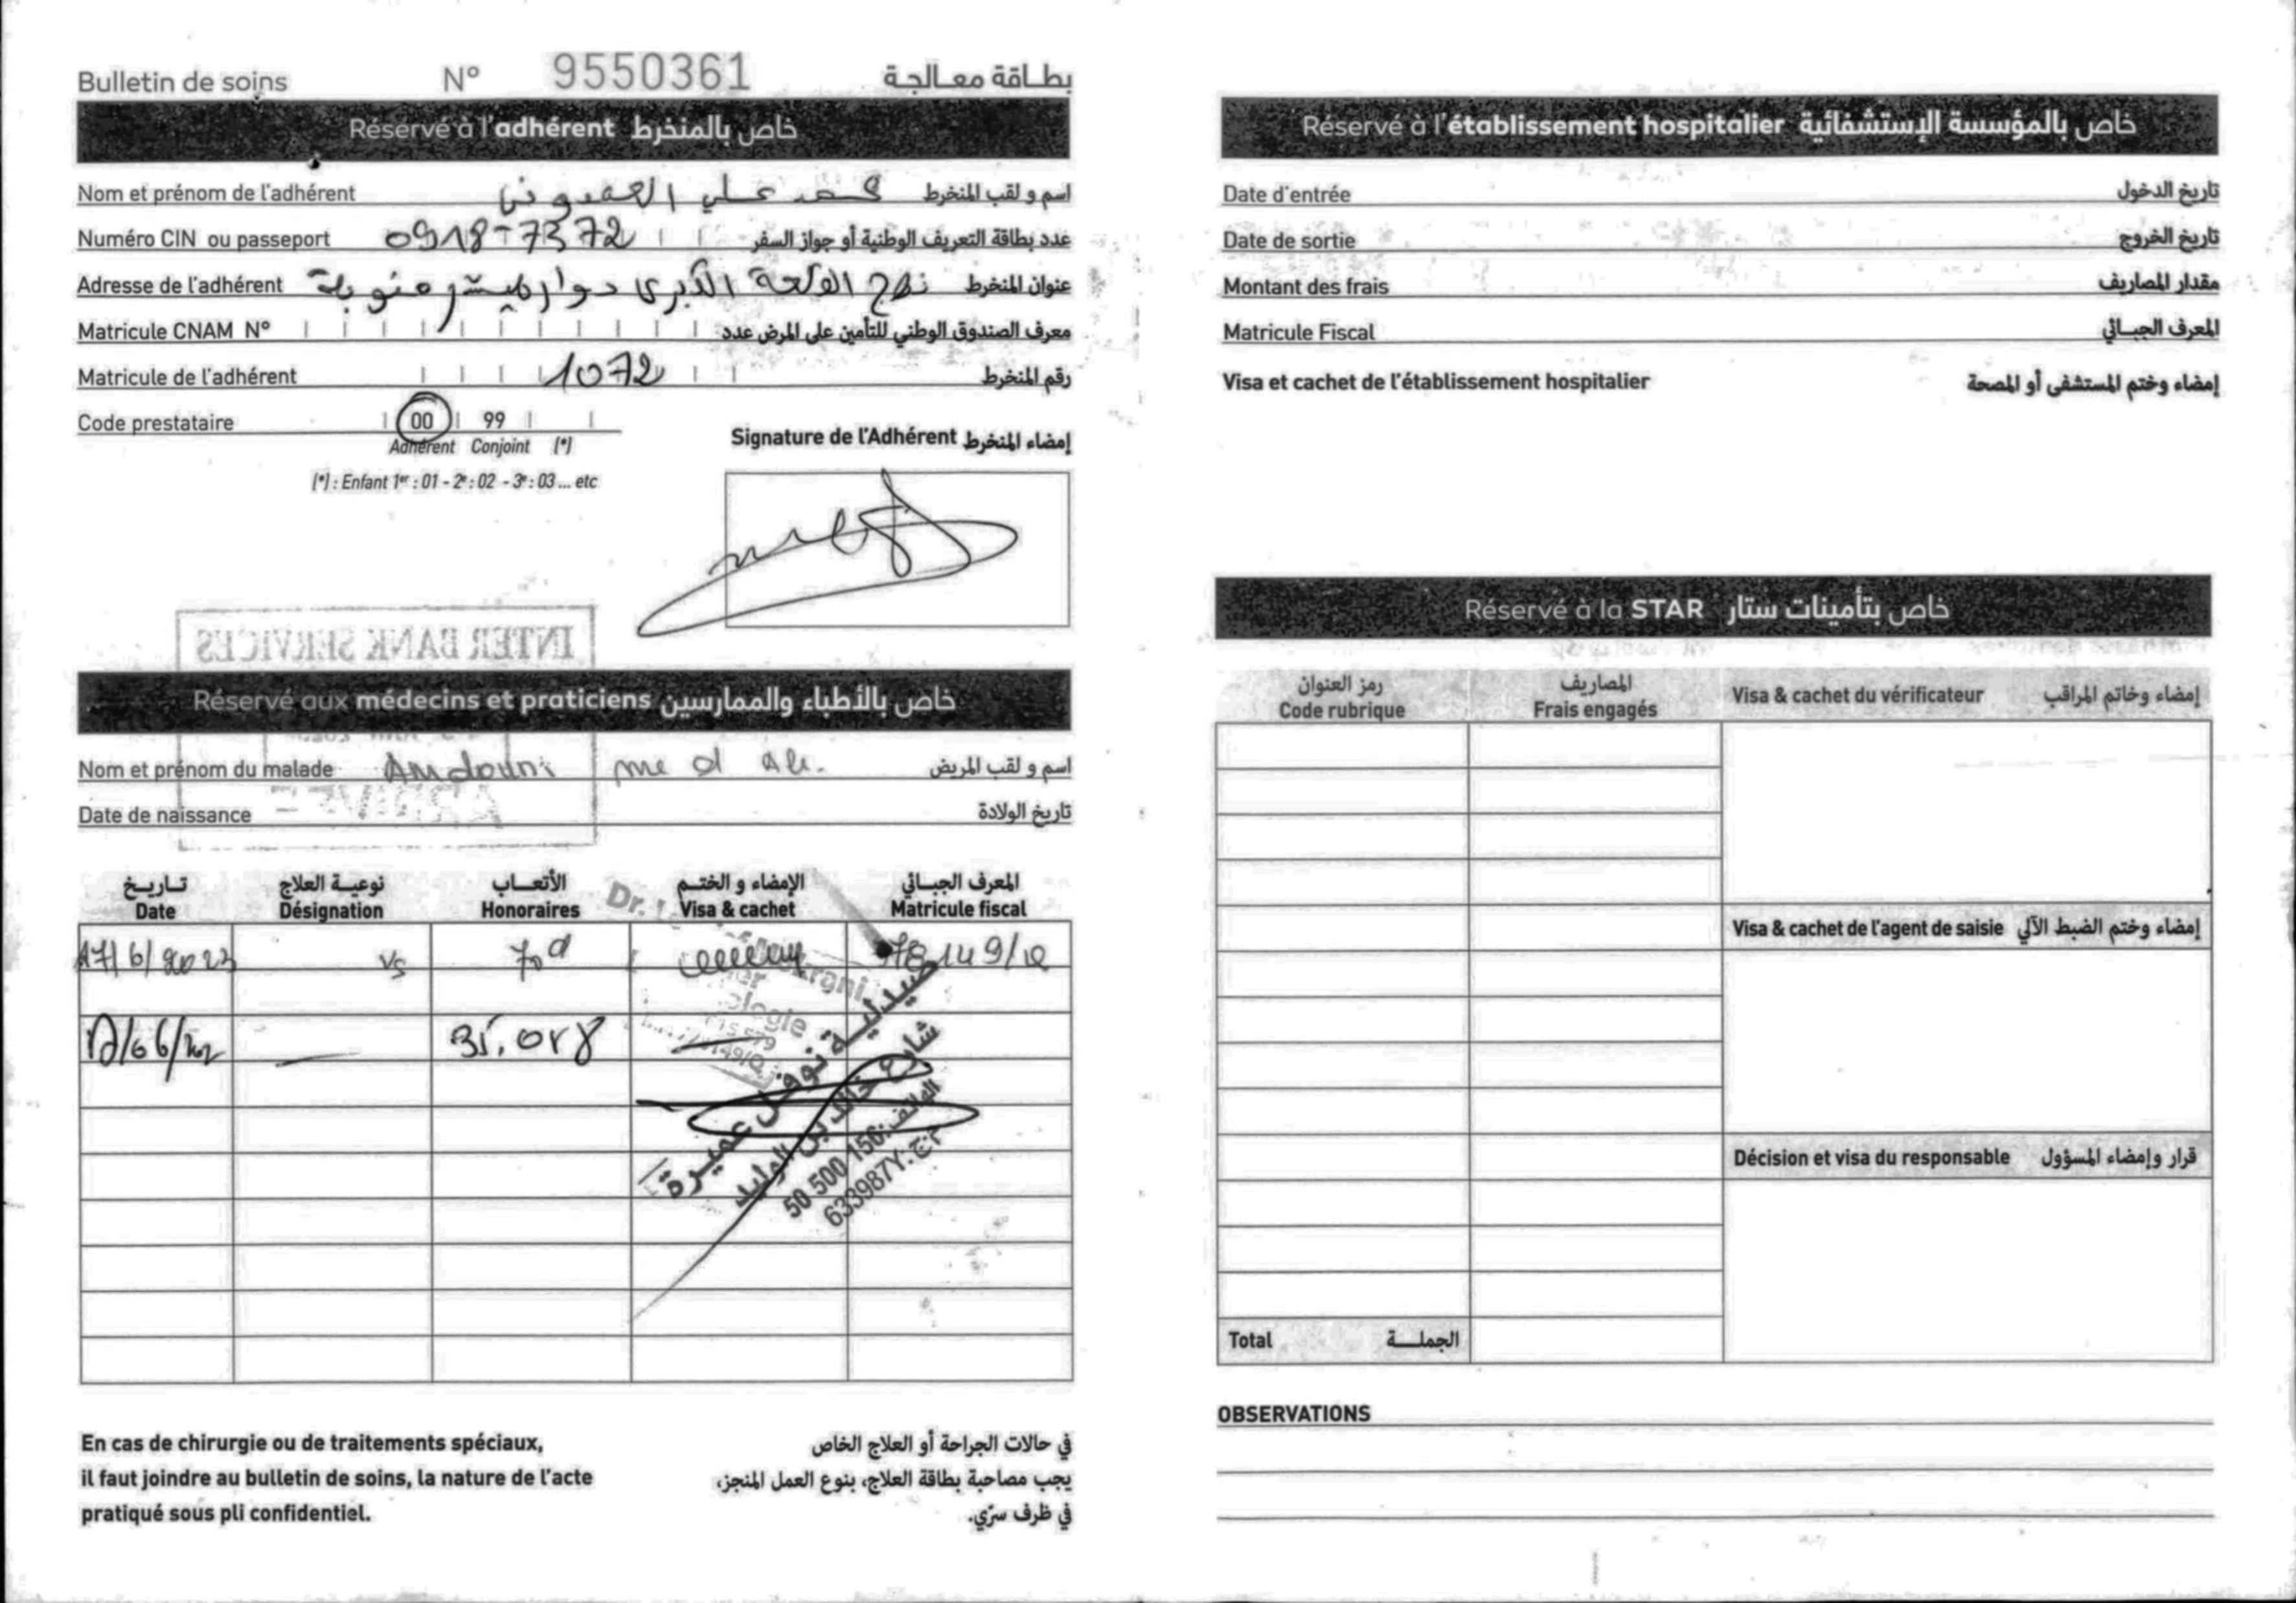 Bulletin de soins N° 9550361 بطاقة معالجة
Réservé à l'adhérent خاص بالمنخرط
Nom et prénom de l'adhérent محمد علي العمدوني اسم و لقب المنخرط
Numéro CIN ou passeport 0918-7372 عدد بطاقة التعريف الوطنية أو جواز السفر
Adresse de l'adhérent نهج الكبرى دوار هيشر منوبة عنوان المنخرط
Matricule CNAM N° معرف الصندوق الوطني للتأمين على المرض عدد
Matricule de l'adhérent 1072 رقم المنخرط
Code prestataire 00 99
Adhérent Conjoint (*)
(*) : Enfant 1er : 01 - 2e : 02 - 3e : 03 ... etc
Signature de l'Adhérent إمضاء المنخرط
INTER BANK SERVICES
Réservé aux médecins et praticiens خاص بالأطباء والممارسين
Nom et prénom du malade Amdouni med Ali. اسم و لقب المريض
Date de naissance تاريخ الولادة
تاريخ نوعية العلاج الأتعاب الإمضاء و الختم المعرف الجبائي
Date Désignation Honoraires Visa & cachet Matricule fiscal
17/6/2023 vs 70d 78149/Q
35,018
Dr.
صيدلية نوفل عميرة
شارع خالد بن الوليد
الهاتف: 50 500 156
م.ج: 633987Y
En cas de chirurgie ou de traitements spéciaux,
il faut joindre au bulletin de soins, la nature de l'acte
pratiqué sous pli confidentiel.
في حالات الجراحة أو العلاج الخاص
يجب مصاحبة بطاقة العلاج، بنوع العمل المنجز،
في ظرف سرّي.
Réservé à l'établissement hospitalier خاص بالمؤسسة الإستشفائية
Date d'entrée تاريخ الدخول
Date de sortie تاريخ الخروج
Montant des frais مقدار المصاريف
Matricule Fiscal المعرف الجبائي
Visa et cachet de l'établissement hospitalier إمضاء وختم المستشفى أو المصحة
Réservé à la STAR خاص بتأمينات ستار
رمز العنوان المصاريف
Code rubrique Frais engagés Visa & cachet du vérificateur إمضاء وخاتم المراقب
Visa & cachet de l'agent de saisie إمضاء وختم الضبط الآلي
Décision et visa du responsable قرار وإمضاء المسؤول
Total الجملة
OBSERVATIONS